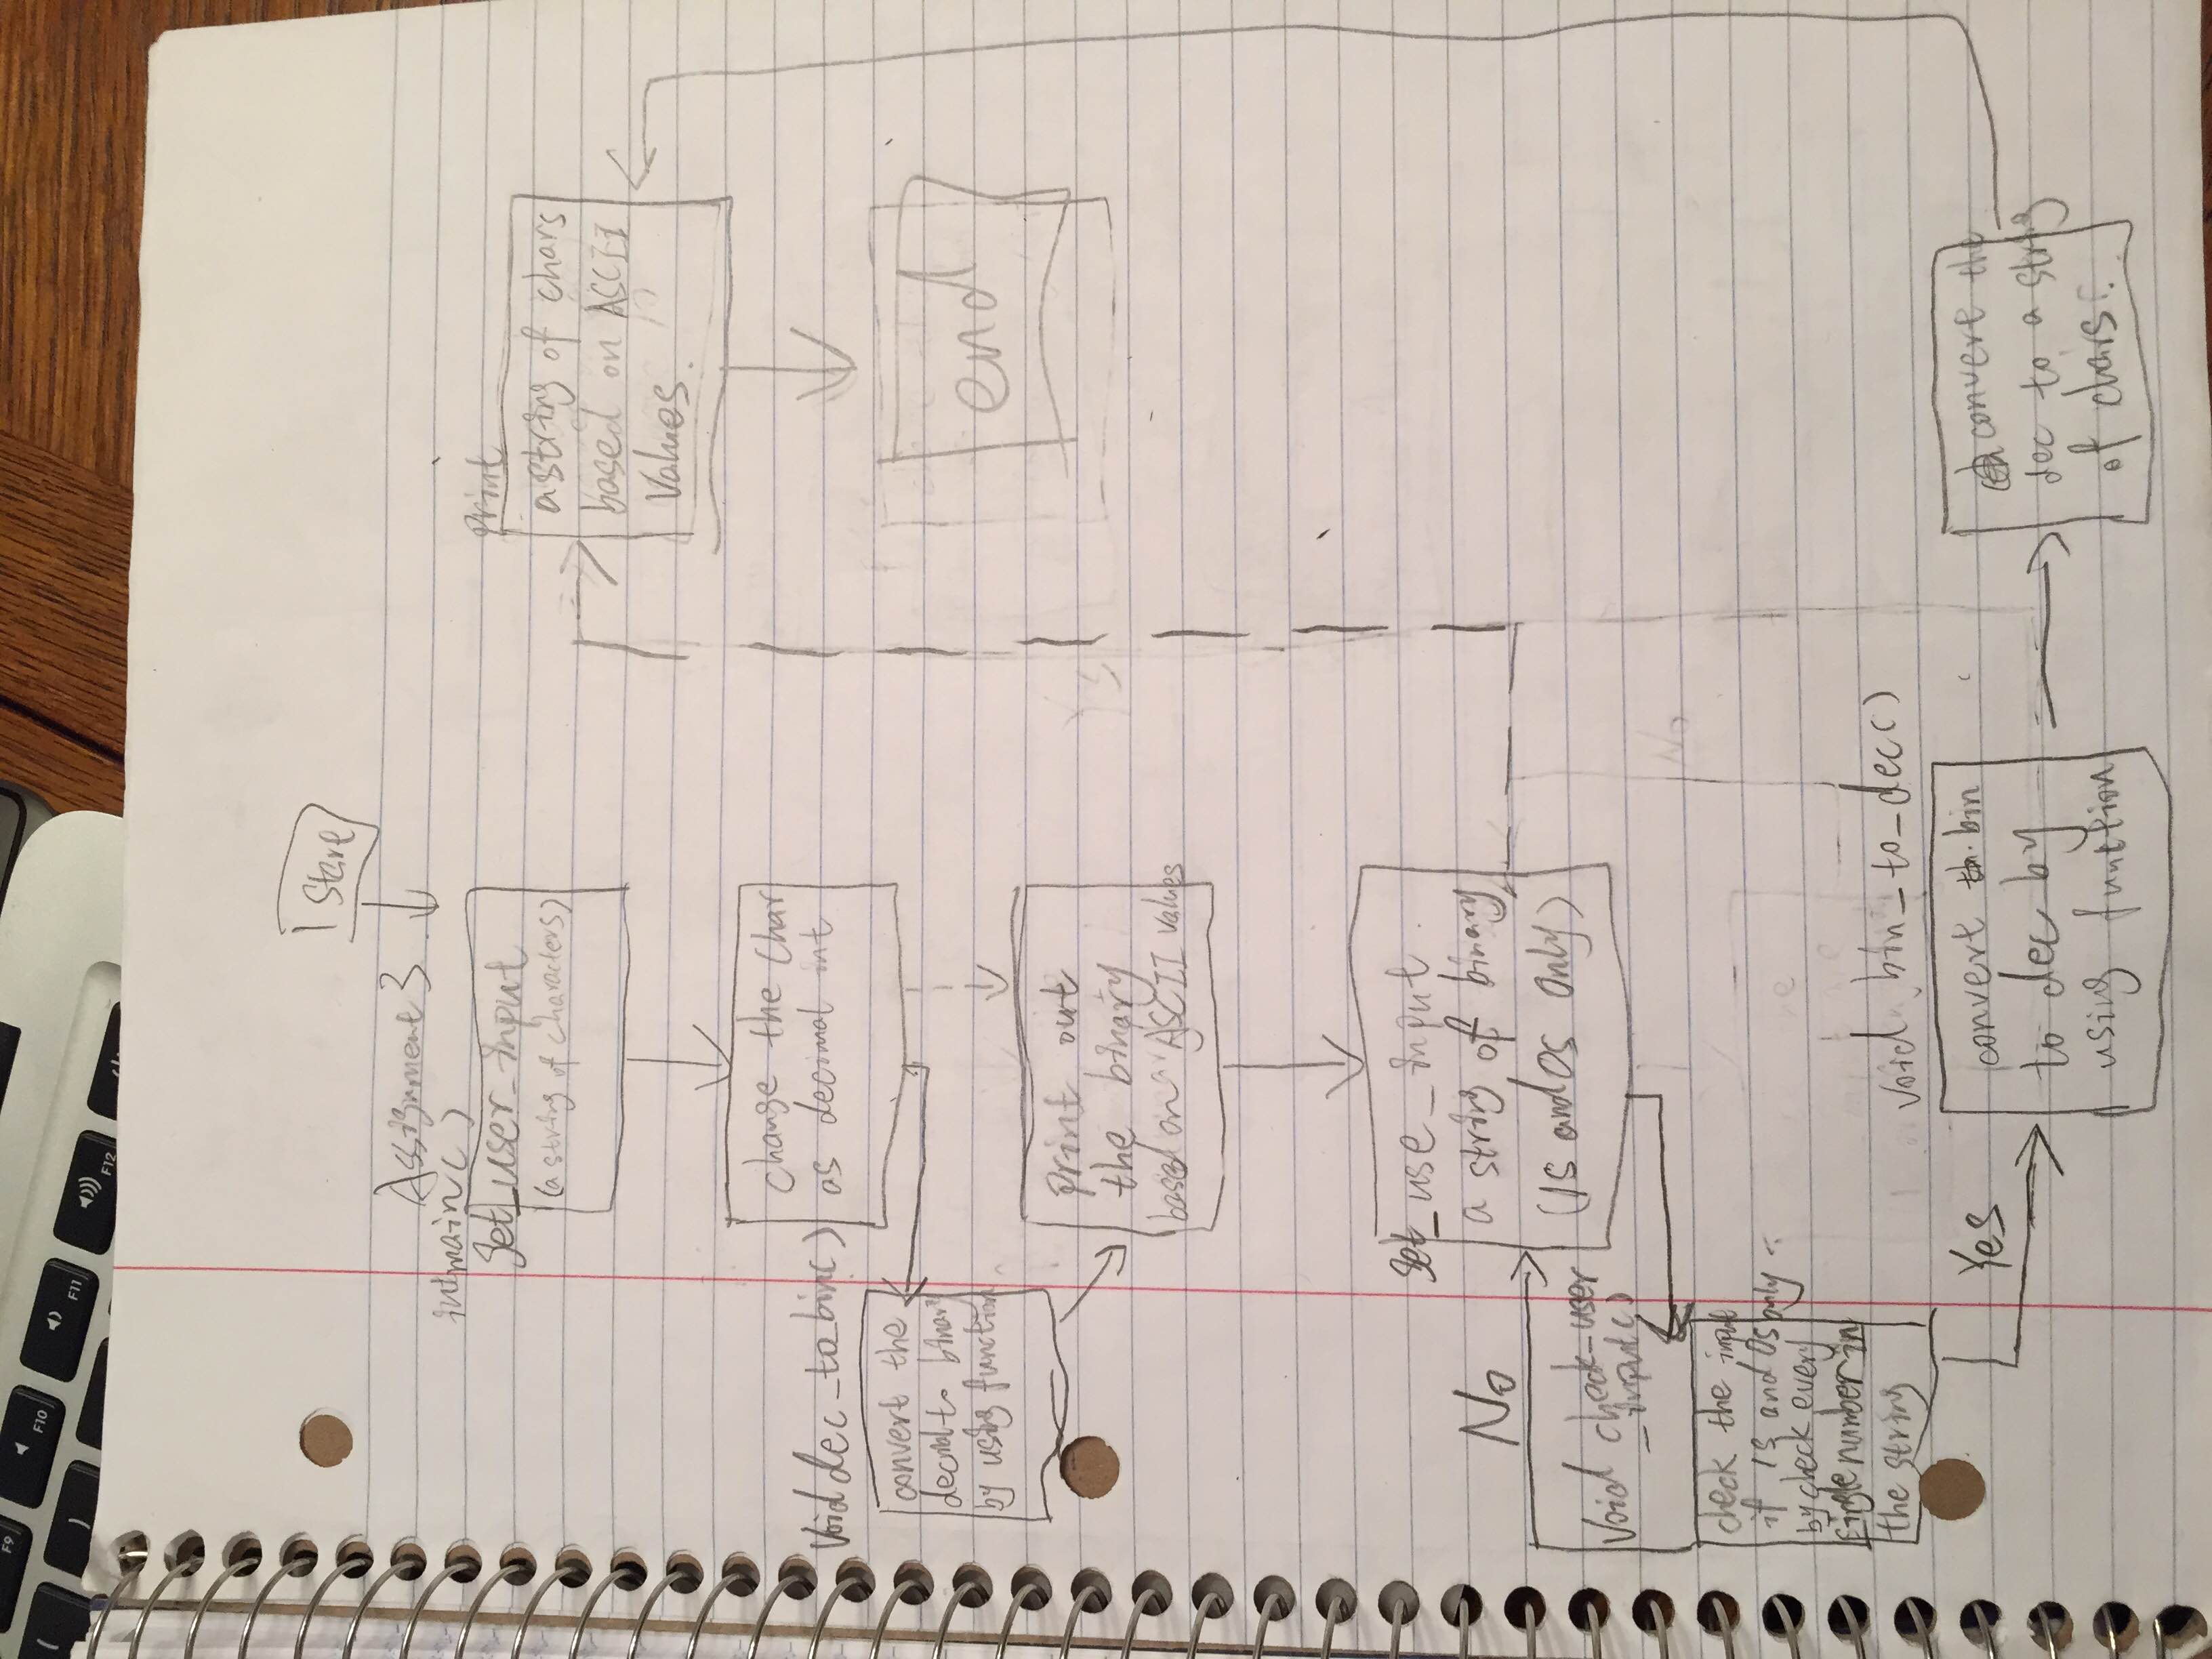 F9
F10
F11
F12
Start
Assignment 3
int main()
get_user_input
(a string of characters)
change the char
as decimal int
Void dec_to_bin()
convert the
decmal to binary
by using function
print out
the binary
based on ASCII values
get_use_input
a string of binary
(1s and 0s only)
No
Void check_user
_input()
check the input
if 1s and 0s only
by check every
single number in
the string
Yes
void bin_to_dec()
convert th bin
to dec by
using function
convert the
dec to a string
of chars.
print
a string of chars
based on ASCII
Values.
end
No